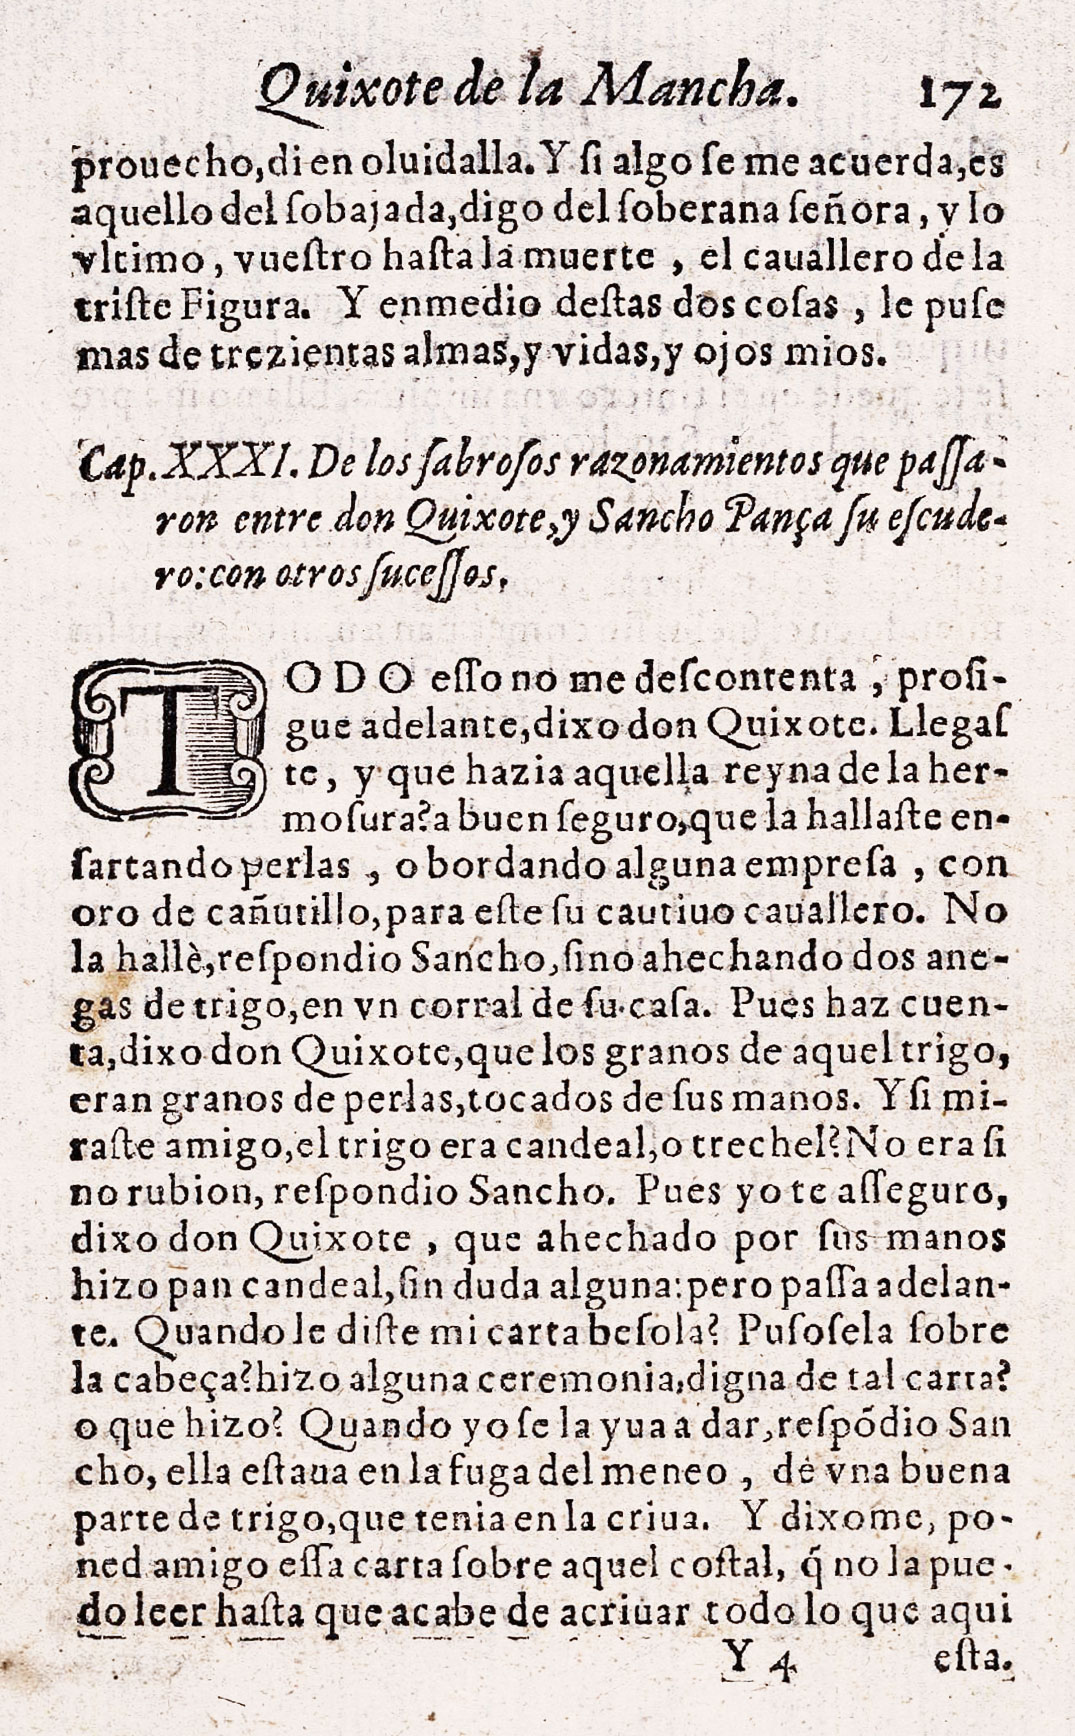 Quixote de la Mancha. 172
prouecho,di en oluidalla. Y ſi algo ſe me acuerda,es
aquello del ſobajada,digo del ſoberana ſeñora, y lo
vltimo, vueſtro haſta la muerte, el cauallero de la
triſte Figura. Y enmedio deſtas dos coſas, le puſe
mas de trezientas almas,y vidas,y ojos mios.
Cap. XXXI. De los ſabroſos razonamientos que paſſa-
ron entre don Quixote,y Sancho Pança ſu eſcude-
ro: con otros ſuceſſos.
TODO eſſo no me deſcontenta, proſi-
gue adelante,dixo don Quixote. Llegaſ
te, y que hazia aquella reyna de la her-
moſura? a buen ſeguro,que la hallaſte en-
ſartando perlas, o bordando alguna empreſa, con
oro de cañutillo,para eſte ſu cautiuo cauallero. No
la hallè,reſpondio Sancho,ſino ahechando dos ane-
gas de trigo,en vn corral de ſu caſa. Pues haz cuen-
ta,dixo don Quixote,que los granos de aquel trigo,
eran granos de perlas,tocados de ſus manos. Y ſi mi-
raſte amigo,el trigo era candeal,o trechel? No era ſi
no rubion, reſpondio Sancho. Pues yo te aſſeguro,
dixo don Quixote, que ahechado por ſus manos
hizo pan candeal,ſin duda alguna: pero paſſa adelan-
te. Quando le diſte mi carta beſola? Puſoſela ſobre
la cabeça? hizo alguna ceremonia,digna de tal carta?
o que hizo? Quando yo ſe la yua a dar,reſpõdio San
cho, ella eſtaua en la fuga del meneo, de vna buena
parte de trigo,que tenia en la criua. Y dixome, po-
ned amigo eſſa carta ſobre aquel coſtal, q̃ no la pue-
do leer haſta que acabe de acriuar todo lo que aqui
Y 4 eſta.